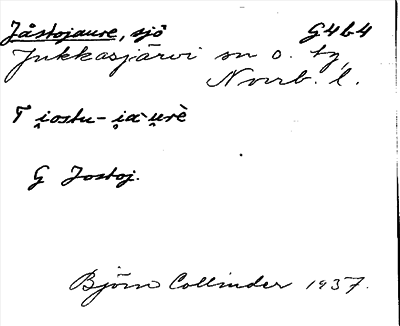 Jåstojaure, sjö G4b4
Jukkasjärvi sn o. tg,
Norrb. l.
T i̯ostu-i̯a·u̯rè
G Jostoj.
Björn Collinder 1937.